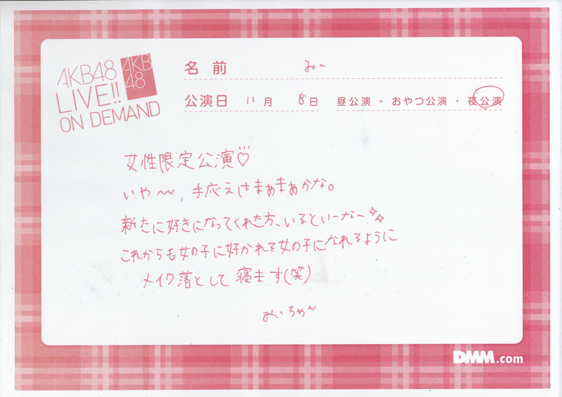 AKB48
LIVE!!
ON DEMAND
AKB
48
名前 みー
公演日 11月 8日 昼公演・おやつ公演・夜公演
女性限定公演♡
いや〜、手応えはまぁまぁかな。
新たに好きになってくれた方、いるといーなー✧✧
これからも女の子に好かれる女の子になれるように
メイク落として寝ます(笑)
みぃちゃん
DMM.com